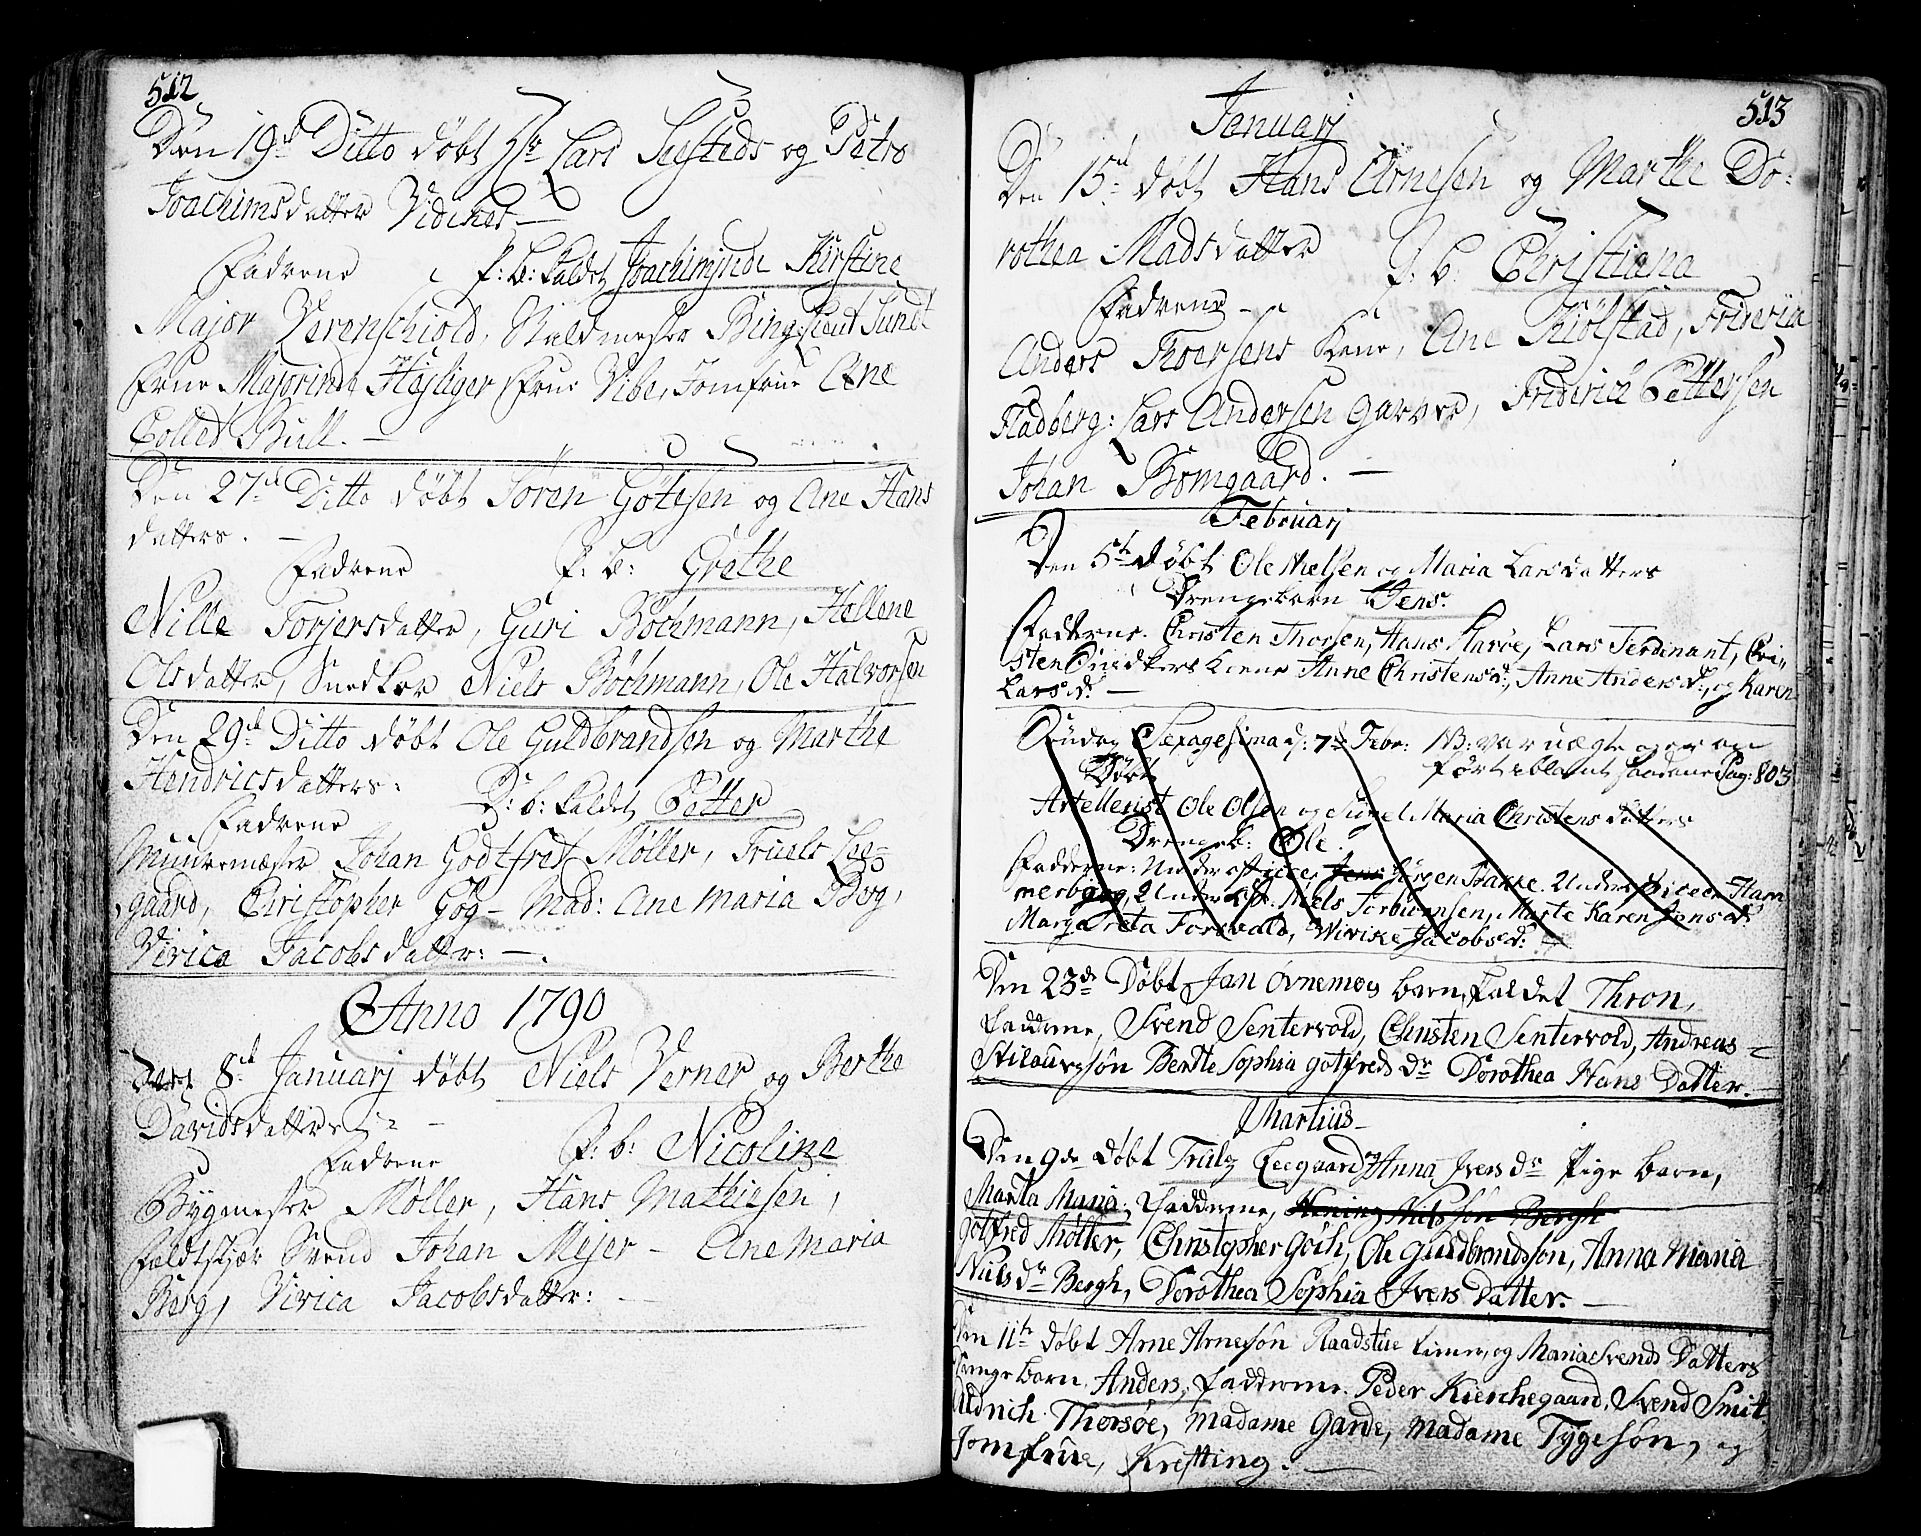 512
Den 19de Ditto døbt Hr Lars Seesteds og Petro
Joachimsdatter Vidikes —
Fadrene P: b: kaldet Joachiminde Kirstine
Major Verenschiold, Staldmester Bing, Lieut Sundt
Frue Majorinde Hejliger Frue Vibe, Jomfrue Ane
Colled Bull. —
Den 27de Ditto døbt Søren Götesen og Ane Hans
datters. —
Fadrene P: b: Grethe
Nille Torjersdatter, Guri Böchmann, Hellene
Olsdatter, Snedker Niels Böchmann, Ole Halvorsen
Den 29de Ditto døbt Ole Guldbrandsen og Marthe
Hendricsdatters:
Fadrene D: b: kaldet Petter
Muuremester Johan Godtfred Møller, Truels Lee-
gaard, Christopher Gög — Mad: Ane Maria Berg,
Virica Jacobsdatter: —.
Anno 1790
Den 8de Januarj døbt Niels Verner og Berthe
Davidsdatters
Fadrene P: b: Nicoline
Bygmester Møller, Hans Mathiesen,
Feldtskjær Svend Johan Mejer — Ane Maria
Berg, Virica Jacobsdatter: —
513
Januarj
Den 15de døbt Hans Arnesen og Marthe Do:
rothea Madsdatter P. b: Christiana
Fadrene
Anders Thoersens Kone, Ane Kiölstad, Friderica
Fladberg: Lars Andersen Garver, Friderich Pettersen
Johan Bomgaard. —
Februarj
Den 5te Døbt Ole Nielsen og Maria Larsdatters
Drengebarn Jens.
Fadderne. Christen Thorsen, Hans Marøe, Lars Ferdinant, Chri-
sten Snidkers Kone Anne Christensd:, Anne Andersd:, og Karen
Larsd: —
Søndag Sexagesima d: 7de Febr: NB: var uægte og er an
Døbt ført iblant saadane Pag: 803
Artellerist Ole Olsen og Maria Christensdatters
Drengeb: Ole.
Fadderne: Underofficer Jens Jørgen Bakke. Underofficeer Ham
merbøg, Underoff: Niels Torbiørnsen, Marte Karen Jensd:
Margareta Forsvald, Wivike Jacobsd:
Den 23de Døbt Jan Ovnemog barn, kaldet Thron,
Faddrene, Svend Sentervold, Christen Sentervold, Andreas
Stilaursøn Bertte Sophia Gotfreds Dr Dorothea Hans Datter.
Martius
Den 9de døbt Trulz Leegaard og Anna Ivers Dr Pige barn,
Marta Maria, Faddrene, Hening Nilssøn Bergh
Gotfred Møller, Christopher Göth, Ole Guldbrandssøn, Anna Maria
Niels Dr Bergh, Dorothea Sophia Ivers Datter. —
Den 11te døbt Arne Arnesøn Raadstue tiener, og Maria Svends Datters
Drengebarn, Anders, Faddrene. Peder Kierchegaard, Svend Smit
Thorsøe, Madame Garde, Madame Tygeson, og
Jomfrue, Krefting. —